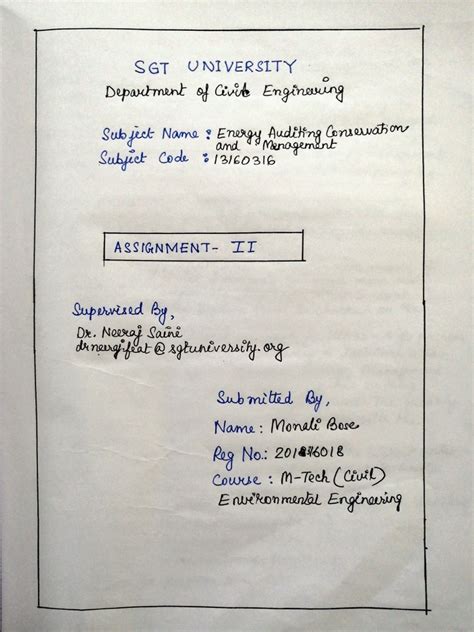 SGT UNIVERSITY
Department of Civil Engineering
Subject Name : Energy Auditing Conservation
and Menagement
Subject Code : 13160316
ASSIGNMENT- II
Supervised By,
Dr. Neeraj Saini
drneeraj.feat@sgtuniversity.org
Submitted By,
Name : Monali Bose
Reg No.:
Course : M-Tech (Civil)
Environmental Engineering